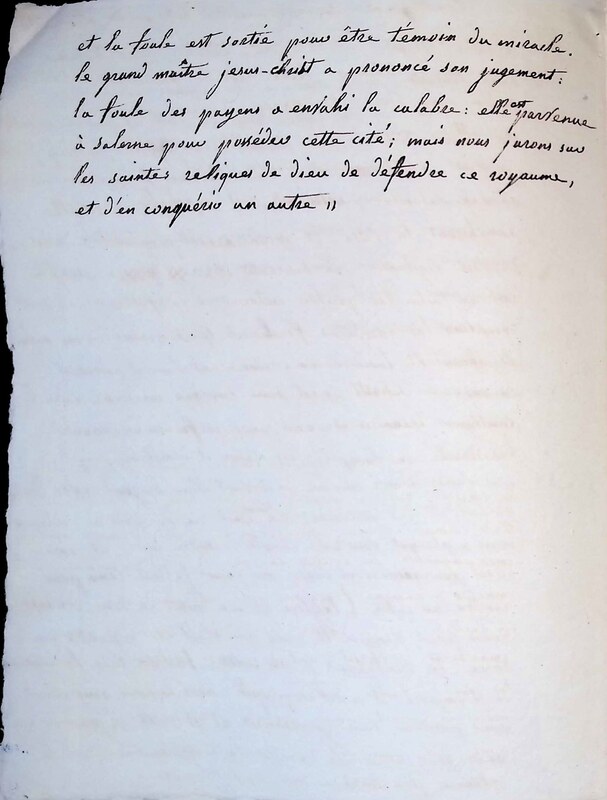 et la foule est sortie pour être témoin du miracle.
le grand maître jesus-christ a prononcé son jugement:
la foule des payens a envahi la calabre: elle est parvenue
à salerne pour posséder cette cité; mais nous jurons sur
les saintes reliques de dieu de défendre ce royaume,
et d'en conquérir un autre ,,